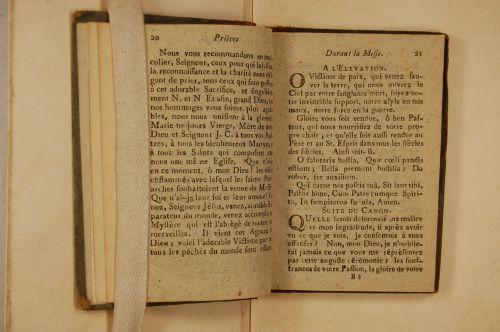 20 Prières
Nous vous recommandons en parti-
culier, Seigneur, ceux pour qui la justice,
la reconnaissance et la charité nous obli-
gent de prier, tous ceux qui sont présens
à cet adorable Sacrifice, et singulière-
ment N. et N Et afin, grand Dieu, que
nos hommages vous soient plus agréa-
bles, nous nous unissons à la glorieuse
Marie toujours Vierge, Mère de notre
Dieu et Seigneur J. C. à tous vos Apô-
tres, à tous les bienheureux Martyrs, et
à tous les Saints qui composent avec
nous une même Eglise. Que n'ai-je
en ce moment, ô mon Dieu ! les désirs
enflammés avec lesquels les saints Patri-
arches souhaitoient la venue du Messie.
Que n'ai-je leur foi et leur amour ! Ve-
nez, Seigneur Jésus, venez, aimable ré-
parateur du monde, venez accomplir un
Mystère qui est l'abrégé de toutes vos
merveilles. Il vient cet Agneau de
Dieu; voici l'adorable Victime par qui
tous les péchés du monde sont effacés.
Durant la Messe. 21
A L'ELEVATION.
O Victime de paix, qui venez sau-
ver la terre, qui nous ouvrez le
Ciel par votre sanglante mort, soyez no-
tre invincible support, notre asyle en nos
maux, notre force en la guerre.
Gloire vous soit rendue, ô bon Pas-
teur, qui nous nourrissez de votre pro-
pre chair; et qu'elle soit aussi rendue au
Père et au St. Esprit dans tous les siècles
des siècles. Ainsi soit-il.
O salutaris hostia, Quæ cœli pandis
ostium; Bella permunt hostilia: Da
robur, fer auxilium.
Qui carne nos pascis tuâ, Sit laus tibi,
Pastor bone, Cum Patre cumque Spiri-
tu, In sempiterna sæcula, Amen.
SUITE DU CANON.
QUELLE seroit désormais ma malice
et mon ingratitude, si après avoir
vu ce que je vois, je consentois à vous
offenser ? Non, mon Dieu, je n'oublie-
rai jamais ce que vous me représentez
par cette auguste cérémonie: les souf-
frances de votre Passion, la gloire de votre
B 2